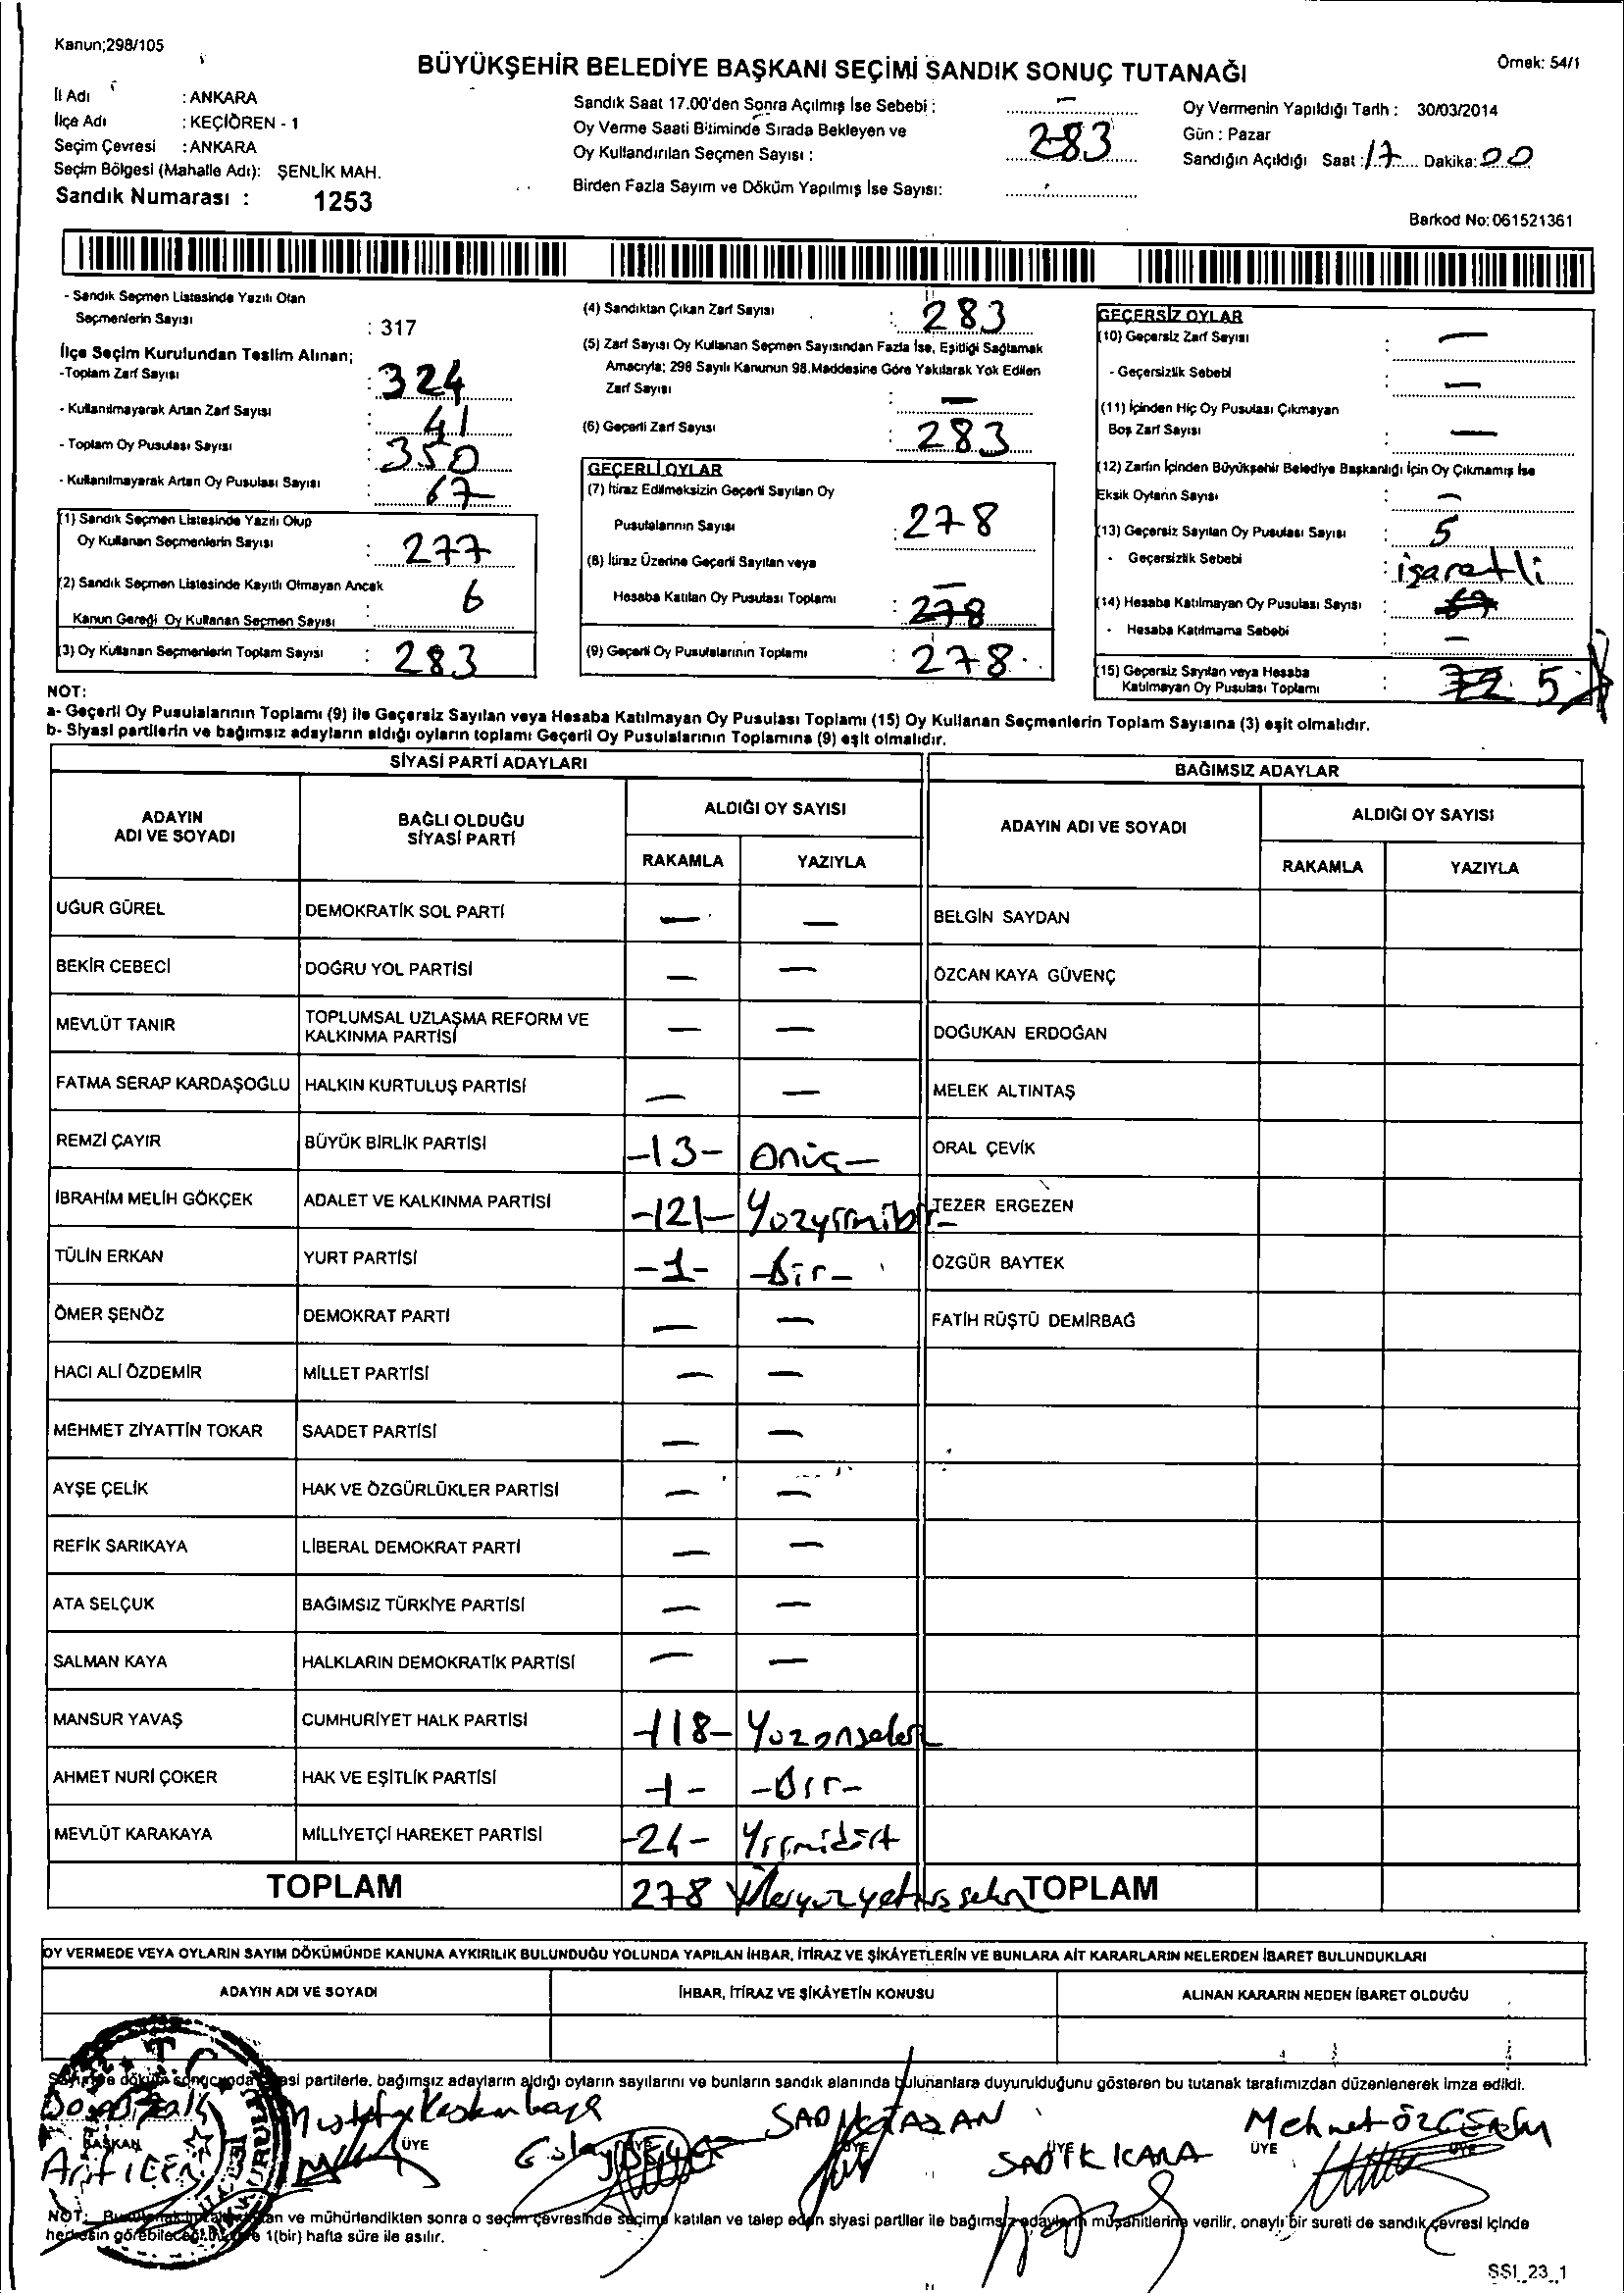 Kanun;298/105
BÜYÜKŞEHİR BELEDİYE BAŞKANI SEÇİMİ SANDIK SONUÇ TUTANAĞI
Örnek: 54/1
İl Adı : ANKARA
İlçe Adı : KEÇİÖREN - 1
Seçim Çevresi : ANKARA
Seçim Bölgesi (Mahalle Adı): ŞENLİK MAH.
Sandık Numarası : 1253
Sandık Saat 17.00'den Sonra Açılmış İse Sebebi : —
Oy Verme Saati Bitiminde Sırada Bekleyen ve
Oy Kullandırılan Seçmen Sayısı : 283
Birden Fazla Sayım ve Döküm Yapılmış İse Sayısı:
Oy Vermenin Yapıldığı Tarih : 30/03/2014
Gün : Pazar
Sandığın Açıldığı Saat : 17 Dakika: 00
Barkod No: 061521361
- Sandık Seçmen Listesinde Yazılı Olan
Seçmenlerin Sayısı : 317
İlçe Seçim Kurulundan Teslim Alınan;
-Toplam Zarf Sayısı : 324
- Kullanılmayarak Artan Zarf Sayısı : 41
- Toplam Oy Pusulası Sayısı : 350
- Kullanılmayarak Artan Oy Pusulası Sayısı : 67
(1) Sandık Seçmen Listesinde Yazılı Olup
Oy Kullanan Seçmenlerin Sayısı : 277
(2) Sandık Seçmen Listesinde Kayıtlı Olmayan Ancak
Kanun Gereği Oy Kullanan Seçmen Sayısı : 6
(3) Oy Kullanan Seçmenlerin Toplam Sayısı : 283
(4) Sandıktan Çıkan Zarf Sayısı : 283
(5) Zarf Sayısı Oy Kullanan Seçmen Sayısından Fazla İse, Eşitliği Sağlamak
Amacıyla; 298 Sayılı Kanunun 98.Maddesine Göre Yakılarak Yok Edilen
Zarf Sayısı : —
(6) Geçerli Zarf Sayısı : 283
GEÇERLİ OYLAR
(7) İtiraz Edilmeksizin Geçerli Sayılan Oy
Pusulalarının Sayısı : 278
(8) İtiraz Üzerine Geçerli Sayılan veya
Hesaba Katılan Oy Pusulası Toplamı : 278 —
(9) Geçerli Oy Pusulalarının Toplamı : 278
GEÇERSİZ OYLAR
(10) Geçersiz Zarf Sayısı : —
- Geçersizlik Sebebi : —
(11) İçinden Hiç Oy Pusulası Çıkmayan
Boş Zarf Sayısı : —
(12) Zarfın İçinden Büyükşehir Belediye Başkanlığı İçin Oy Çıkmamış İse
Eksik Oyların Sayısı : —
(13) Geçersiz Sayılan Oy Pusulası Sayısı : 5
- Geçersizlik Sebebi : işaretli
(14) Hesaba Katılmayan Oy Pusulası Sayısı : 67
- Hesaba Katılmama Sebebi : —
(15) Geçersiz Sayılan veya Hesaba
Katılmayan Oy Pusulası Toplamı : 72 5
NOT:
a- Geçerli Oy Pusulalarının Toplamı (9) ile Geçersiz Sayılan veya Hesaba Katılmayan Oy Pusulası Toplamı (15) Oy Kullanan Seçmenlerin Toplam Sayısına (3) eşit olmalıdır.
b- Siyasi partilerin ve bağımsız adayların aldığı oyların toplamı Geçerli Oy Pusulalarının Toplamına (9) eşit olmalıdır.
SİYASİ PARTİ ADAYLARI
ADAYIN ADI VE SOYADI
BAĞLI OLDUĞU SİYASİ PARTİ
ALDIĞI OY SAYISI
RAKAMLA YAZIYLA
UĞUR GÜREL DEMOKRATİK SOL PARTİ — —
BEKİR CEBECİ DOĞRU YOL PARTİSİ — —
MEVLÜT TANIR TOPLUMSAL UZLAŞMA REFORM VE KALKINMA PARTİSİ — —
FATMA SERAP KARDAŞOĞLU HALKIN KURTULUŞ PARTİSİ — —
REMZİ ÇAYIR BÜYÜK BİRLİK PARTİSİ -13- Onüç-
İBRAHİM MELİH GÖKÇEK ADALET VE KALKINMA PARTİSİ -121- Yüzyirmibir-
TÜLİN ERKAN YURT PARTİSİ -1- -Bir-
ÖMER ŞENÖZ DEMOKRAT PARTİ — —
HACI ALİ ÖZDEMİR MİLLET PARTİSİ — —
MEHMET ZİYATTİN TOKAR SAADET PARTİSİ — —
AYŞE ÇELİK HAK VE ÖZGÜRLÜKLER PARTİSİ — —
REFİK SARIKAYA LİBERAL DEMOKRAT PARTİ — —
ATA SELÇUK BAĞIMSIZ TÜRKİYE PARTİSİ — —
SALMAN KAYA HALKLARIN DEMOKRATİK PARTİSİ — —
MANSUR YAVAŞ CUMHURİYET HALK PARTİSİ -118- Yüzonsekiz
AHMET NURİ ÇOKER HAK VE EŞİTLİK PARTİSİ -1- -Bir-
MEVLÜT KARAKAYA MİLLİYETÇİ HAREKET PARTİSİ -24- Yirmidört
TOPLAM 278
BAĞIMSIZ ADAYLAR
ADAYIN ADI VE SOYADI
ALDIĞI OY SAYISI
RAKAMLA YAZIYLA
BELGİN SAYDAN
ÖZCAN KAYA GÜVENÇ
DOĞUKAN ERDOĞAN
MELEK ALTINTAŞ
ORAL ÇEVİK
TEZER ERGEZEN
ÖZGÜR BAYTEK
FATİH RÜŞTÜ DEMİRBAĞ
TOPLAM
OY VERMEDE VEYA OYLARIN SAYIM DÖKÜMÜNDE KANUNA AYKIRILIK BULUNDUĞU YOLUNDA YAPILAN İHBAR, İTİRAZ VE ŞİKÂYETLERİN VE BUNLARA AİT KARARLARIN NELERDEN İBARET BULUNDUKLARI
ADAYIN ADI VE SOYADI İHBAR, İTİRAZ VE ŞİKÂYETİN KONUSU ALINAN KARARIN NEDEN İBARET OLDUĞU
partilerle, bağımsız adayların aldığı oyların sayılarını ve bunların sandık alanında bulunanlara duyurulduğunu gösteren bu tutanak tarafımızdan düzenlenerek imza edildi.
BAŞKAN
Mustafa
ÜYE
SADIK KARA
ÜYE
Mehmet
ÜYE
NOT: ve mühürlendikten sonra o seçim çevresinde seçime katılan ve talep eden siyasi partiler ile bağımsız adayların müşahitlerine verilir, onaylı bir sureti de sandık çevresi içinde
herkesin görebileceği 1(bir) hafta süre ile asılır.
SS1_23_1